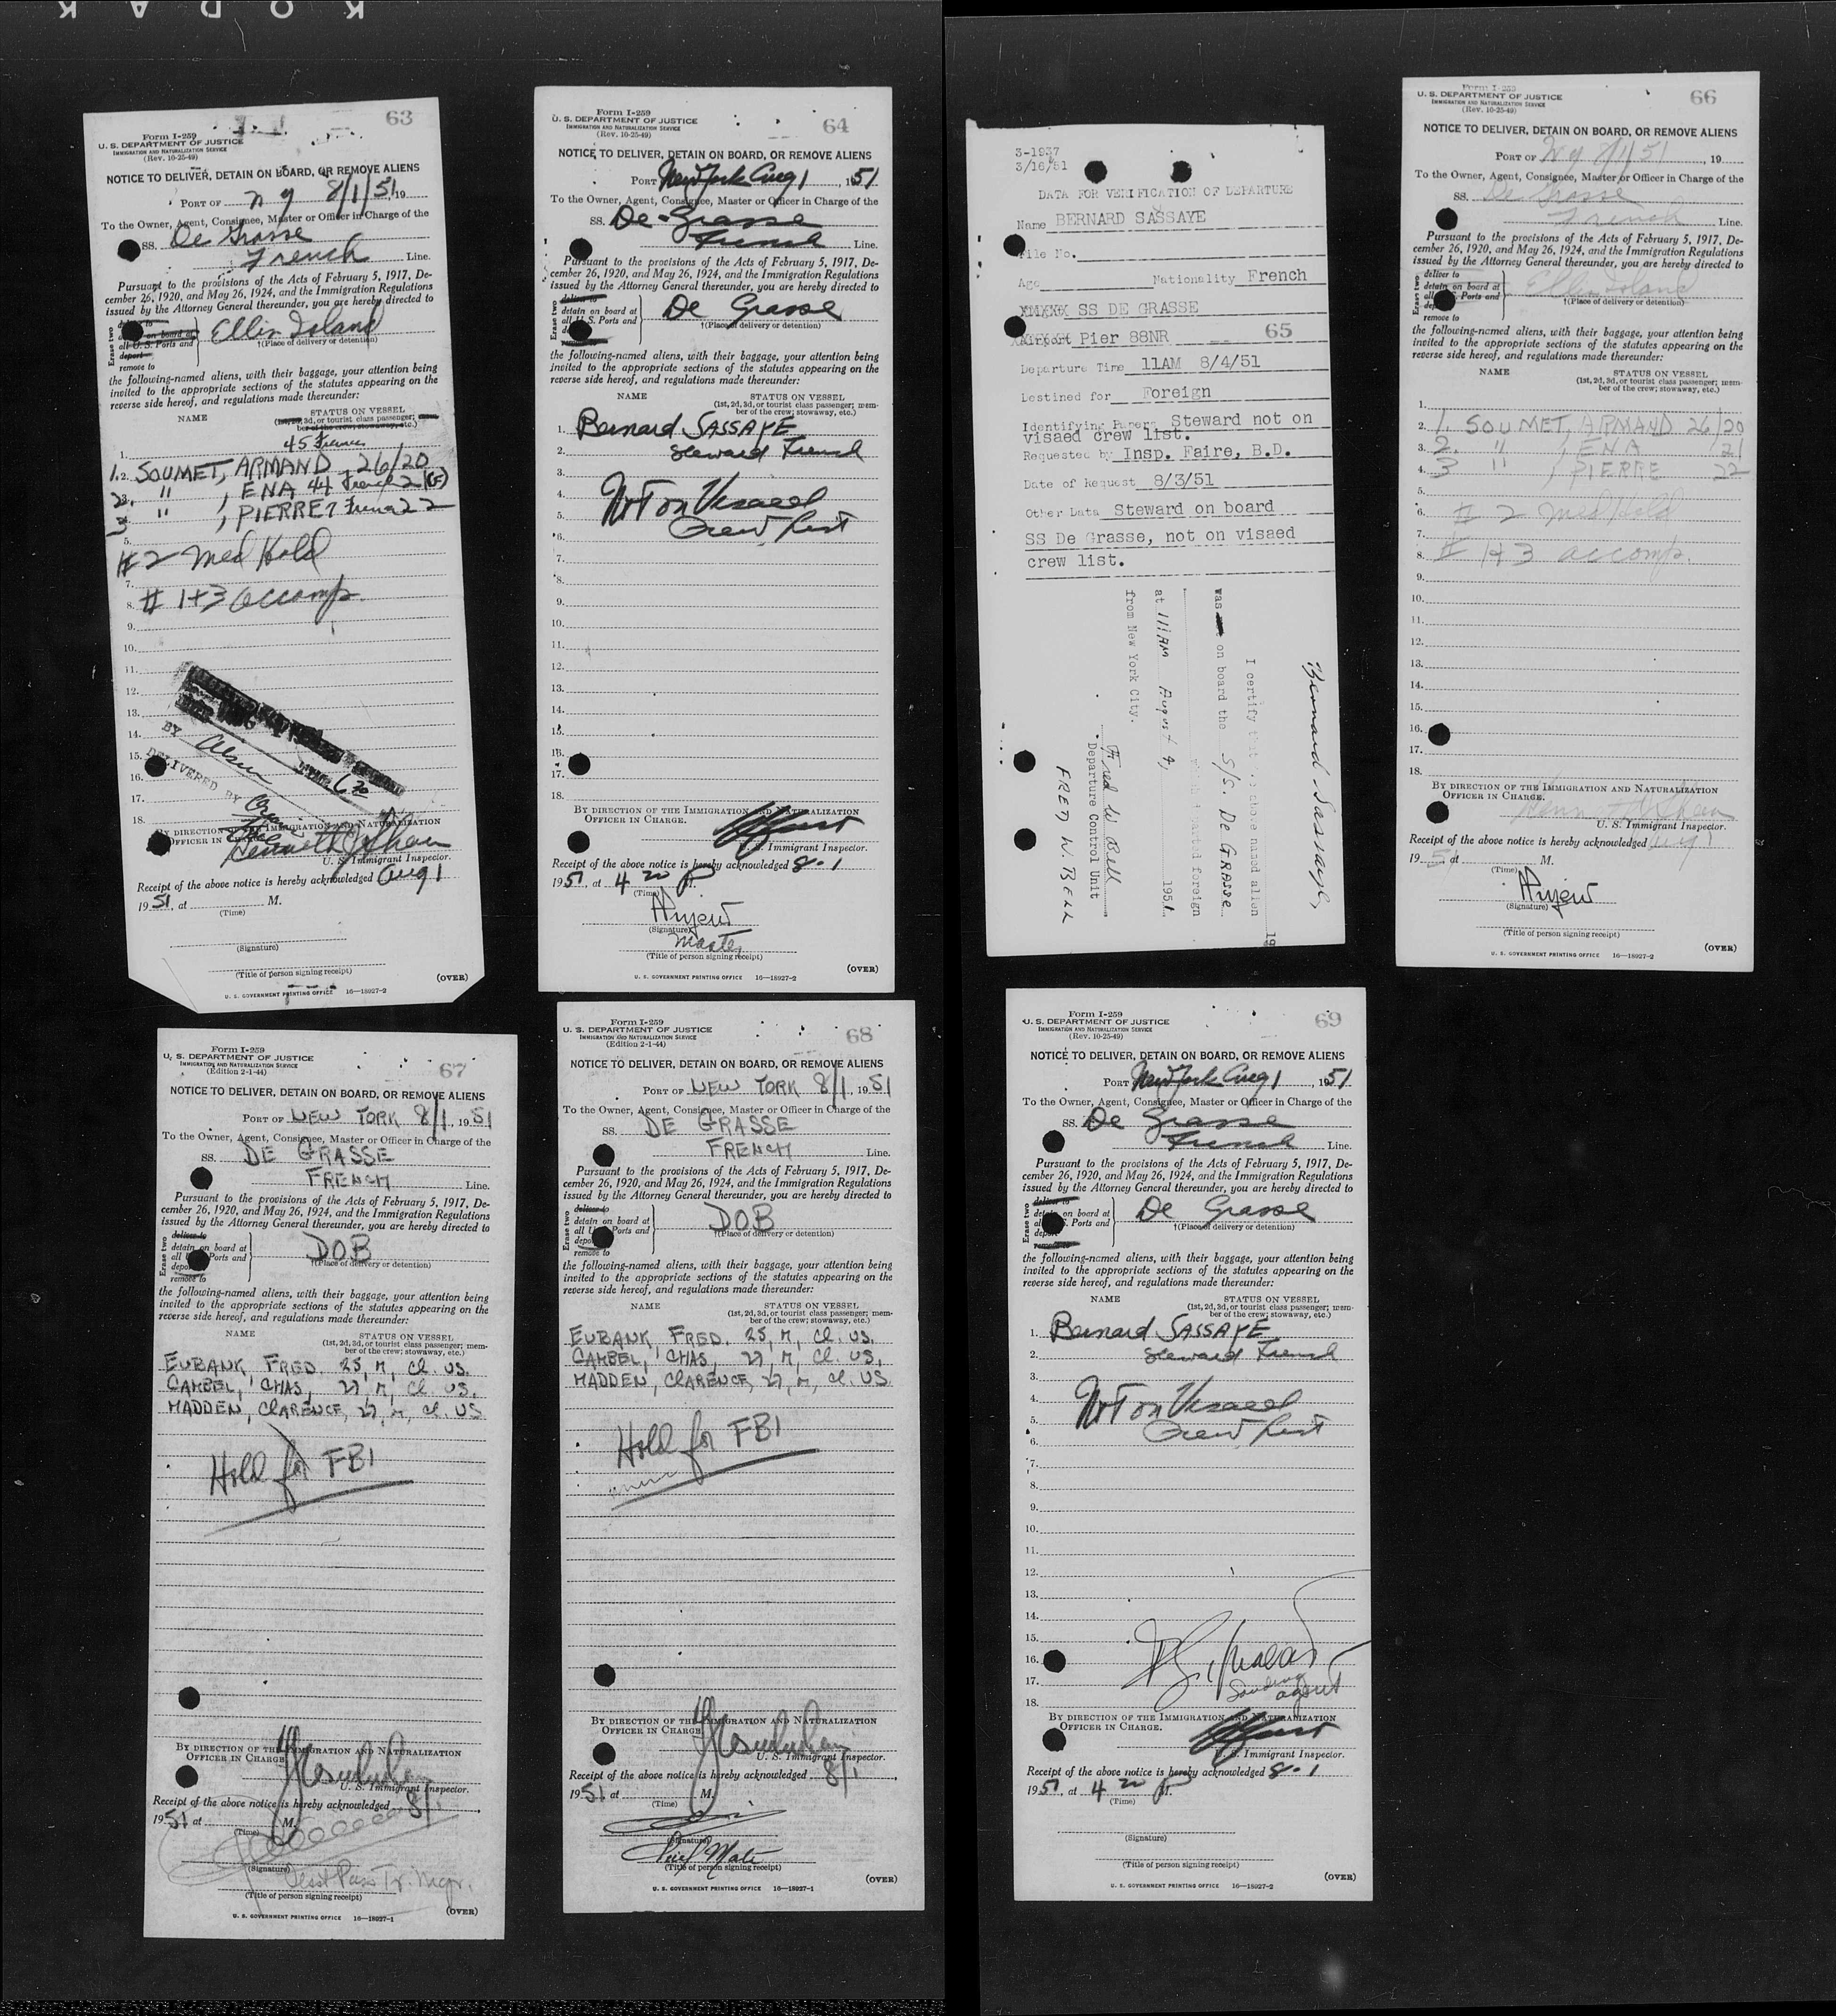 KODAK
63
Form I-259
U. S. DEPARTMENT OF JUSTICE
IMMIGRATION AND NATURALIZATION SERVICE
(Rev. 10-25-49)
NOTICE TO DELIVER, DETAIN ON BOARD, OR REMOVE ALIENS
PORT OF N Y 8/1/51, 19
To the Owner, Agent, Consignee, Master or Officer in Charge of the
SS. De Grasse
French Line.
Pursuant to the provisions of the Acts of February 5, 1917, De-
cember 26, 1920, and May 26, 1924, and the Immigration Regulations
issued by the Attorney General thereunder, you are hereby directed to
Erase two
on board at
all U. S. Ports and
deport
remove to
Ellis Island
†(Place of delivery or detention)
the following-named aliens, with their baggage, your attention being
invited to the appropriate sections of the statutes appearing on the
reverse side hereof, and regulations made thereunder:
NAME STATUS ON VESSEL
(1st, 2d, 3d, or tourist class passenger; mem-
ber of the crew; stowaway, etc.)
1. 45 French
1. 2. SOUMET, ARMAND 26/20
2. 3. " , ENA 44 French 21 (F)
3 " , PIERRE 7 French 22
5.
#2 Med Hold
7.
8. # 1+3 accomp.
9.
10.
11.
12.
13.
14.
BY
15.
DELIVERED BY
16.
17.
18.
BY DIRECTION OF THE IMMIGRATION AND NATURALIZATION
OFFICER IN CHARGE.
Kenneth J Shea
U. S. Immigrant Inspector.
Receipt of the above notice is hereby acknowledged Aug 1
1951, at M.
(Time)
(Signature)
(Title of person signing receipt)
(OVER)
U. S. GOVERNMENT PRINTING OFFICE 16—18927-2
64
Form I-259
U. S. DEPARTMENT OF JUSTICE
IMMIGRATION AND NATURALIZATION SERVICE
(Rev. 10-25-49)
NOTICE TO DELIVER, DETAIN ON BOARD, OR REMOVE ALIENS
PORT New York Aug 1, 1951
To the Owner, Agent, Consignee, Master or Officer in Charge of the
SS. De Grasse
French Line.
Pursuant to the provisions of the Acts of February 5, 1917, De-
cember 26, 1920, and May 26, 1924, and the Immigration Regulations
issued by the Attorney General thereunder, you are hereby directed to
Erase two
deliver to
detain on board at
all U. S. Ports and
De Grasse
†(Place of delivery or detention)
the following-named aliens, with their baggage, your attention being
invited to the appropriate sections of the statutes appearing on the
reverse side hereof, and regulations made thereunder:
NAME STATUS ON VESSEL
(1st, 2d, 3d, or tourist class passenger; mem-
ber of the crew; stowaway, etc.)
1. Bernard SASSAYE
2. Steward French
3.
4. Not on Visaed
5. Crew List
6.
7.
8.
9.
10.
11.
12.
13.
14.
15.
16.
17.
18.
BY DIRECTION OF THE IMMIGRATION AND NATURALIZATION
OFFICER IN CHARGE.
Immigrant Inspector.
Receipt of the above notice is hereby acknowledged 8-1
1951, at 4 20 P M.
(Time)
(Signature)
Master
(Title of person signing receipt)
(OVER)
U. S. GOVERNMENT PRINTING OFFICE 16—18927-2
3-1937
3/16/51
DATA FOR VERIFICATION OF DEPARTURE
Name BERNARD SASSAYE
File No.
Age Nationality French
SS DE GRASSE
Airport Pier 88NR 65
Departure Time 11AM 8/4/51
Destined for Foreign
Identifying Papers Steward not on
visaed crew list.
Requested by Insp. Faire, B.D.
Date of Request 8/3/51
Other Data Steward on board
SS De Grasse, not on visaed
crew list.
Bernard Sassaye,
19
I certify that the above named alien
was on board the S/S. De GRASSE
which departed foreign
at 11:1AM August 4, 1951
from New York City.
Fred W Bell
Departure Control Unit
FRED W. BELL
66
Form I-259
U. S. DEPARTMENT OF JUSTICE
IMMIGRATION AND NATURALIZATION SERVICE
(Rev. 10-25-49)
NOTICE TO DELIVER, DETAIN ON BOARD, OR REMOVE ALIENS
PORT OF N Y 8/1/51, 19
To the Owner, Agent, Consignee, Master or Officer in Charge of the
SS. De Grasse
French Line.
Pursuant to the provisions of the Acts of February 5, 1917, De-
cember 26, 1920, and May 26, 1924, and the Immigration Regulations
issued by the Attorney General thereunder, you are hereby directed to
Erase two
deliver to
detain on board at
all Ports and
remove to
Ellis Island
†(Place of delivery or detention)
the following-named aliens, with their baggage, your attention being
invited to the appropriate sections of the statutes appearing on the
reverse side hereof, and regulations made thereunder:
NAME STATUS ON VESSEL
(1st, 2d, 3d, or tourist class passenger; mem-
ber of the crew; stowaway, etc.)
1.
2. 1. SOUMET, ARMAND 26/20
3. 2. " , ENA 21
4. 3 " , PIERRE 22
5.
6. # 2 Med Hold
7.
8. # 1+3 accomp.
9.
10.
11.
12.
13.
14.
15.
16.
17.
18.
BY DIRECTION OF THE IMMIGRATION AND NATURALIZATION
OFFICER IN CHARGE.
Kenneth J Shea
U. S. Immigrant Inspector.
Receipt of the above notice is hereby acknowledged Aug 1
1951, at M.
(Time)
(Signature)
(Title of person signing receipt)
(OVER)
U. S. GOVERNMENT PRINTING OFFICE 16—18927-2
67
Form I-259
U. S. DEPARTMENT OF JUSTICE
IMMIGRATION AND NATURALIZATION SERVICE
(Edition 2-1-44)
NOTICE TO DELIVER, DETAIN ON BOARD, OR REMOVE ALIENS
PORT OF NEW YORK 8/1, 1951
To the Owner, Agent, Consignee, Master or Officer in Charge of the
SS. DE GRASSE
FRENCH Line.
Pursuant to the provisions of the Acts of February 5, 1917, De-
cember 26, 1920, and May 26, 1924, and the Immigration Regulations
issued by the Attorney General thereunder, you are hereby directed to
Erase two
deliver to
detain on board at
all Ports and
remove to
DOB
†(Place of delivery or detention)
the following-named aliens, with their baggage, your attention being
invited to the appropriate sections of the statutes appearing on the
reverse side hereof, and regulations made thereunder:
NAME STATUS ON VESSEL
(1st, 2d, 3d, or tourist class passenger; mem-
ber of the crew; stowaway, etc.)
EUBANK, FRED. 25, M, Cl. US.
CAMBEL, CHAS, 27, M, Cl. US.
MADDEN, CLARENCE, 27, M, Cl. US
Hold for FBI
BY DIRECTION OF THE IMMIGRATION AND NATURALIZATION
OFFICER IN CHARGE
U. S. Immigrant Inspector.
Receipt of the above notice is hereby acknowledged 8/1
1951 at M.
(Time)
(Signature)
(Title of person signing receipt)
(OVER)
U. S. GOVERNMENT PRINTING OFFICE 16—18927-1
68
Form I-259
U. S. DEPARTMENT OF JUSTICE
IMMIGRATION AND NATURALIZATION SERVICE
(Edition 2-1-44)
NOTICE TO DELIVER, DETAIN ON BOARD, OR REMOVE ALIENS
PORT OF NEW YORK 8/1, 1951
To the Owner, Agent, Consignee, Master or Officer in Charge of the
SS. DE GRASSE
FRENCH Line.
Pursuant to the provisions of the Acts of February 5, 1917, De-
cember 26, 1920, and May 26, 1924, and the Immigration Regulations
issued by the Attorney General thereunder, you are hereby directed to
Erase two
deliver to
detain on board at
all U. Ports and
remove to
DOB
†(Place of delivery or detention)
the following-named aliens, with their baggage, your attention being
invited to the appropriate sections of the statutes appearing on the
reverse side hereof, and regulations made thereunder:
NAME STATUS ON VESSEL
(1st, 2d, 3d, or tourist class passenger; mem-
ber of the crew; stowaway, etc.)
EUBANK, FRED. 25, M, Cl. US.
CAMBEL, CHAS, 27, M, Cl. US.
MADDEN, CLARENCE, 27, M, Cl. US
Hold for FBI
BY DIRECTION OF THE IMMIGRATION AND NATURALIZATION
OFFICER IN CHARGE
U. S. Immigrant Inspector.
Receipt of the above notice is hereby acknowledged 8/1,
1951 at M.
(Time)
(Signature)
Chief Mate
(Title of person signing receipt)
(OVER)
U. S. GOVERNMENT PRINTING OFFICE 16—18927-1
69
Form I-259
U. S. DEPARTMENT OF JUSTICE
IMMIGRATION AND NATURALIZATION SERVICE
(Rev. 10-25-49)
NOTICE TO DELIVER, DETAIN ON BOARD, OR REMOVE ALIENS
PORT New York Aug 1, 1951
To the Owner, Agent, Consignee, Master or Officer in Charge of the
SS. De Grasse
French Line.
Pursuant to the provisions of the Acts of February 5, 1917, De-
cember 26, 1920, and May 26, 1924, and the Immigration Regulations
issued by the Attorney General thereunder, you are hereby directed to
Erase two
deliver to
on board at
S. Ports and
De Grasse
†(Place of delivery or detention)
the following-named aliens, with their baggage, your attention being
invited to the appropriate sections of the statutes appearing on the
reverse side hereof, and regulations made thereunder:
NAME STATUS ON VESSEL
(1st, 2d, 3d, or tourist class passenger; mem-
ber of the crew; stowaway, etc.)
1. Bernard SASSAYE
2. Steward French
3.
4. Not on Visaed
5. Crew List
6.
7.
8.
9.
10.
11.
12.
13.
14.
15.
16.
17. agent
18.
BY DIRECTION OF THE IMMIGRATION AND NATURALIZATION
OFFICER IN CHARGE.
U. S. Immigrant Inspector.
Receipt of the above notice is hereby acknowledged 8-1
1951, at 4 20 P M.
(Time)
(Signature)
(Title of person signing receipt)
(OVER)
U. S. GOVERNMENT PRINTING OFFICE 16—18927-2